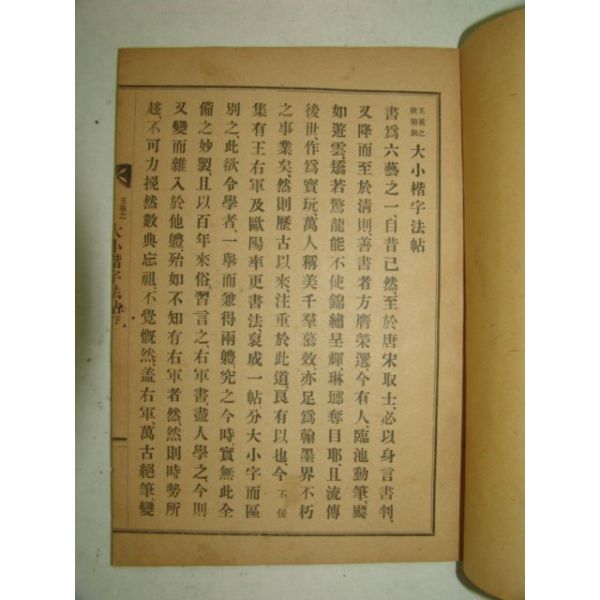 王羲之
歐陽詢
大小楷字法帖
書爲六藝之一、自昔已然、至於唐宋取士、必以身言書判、
又降而至於淸則、善書者方膺榮選、今有人、臨池動筆、飄
如遊雲、矯若驚龍、能不使錦繡呈輝、琳瑯奪目耶、且流傳
後世、作爲寶玩、萬人稱美千羣慕效、亦足爲翰墨界不朽
之事業矣、然則歷古以來、注重於此道、良有以也、今不佞
集有王右軍及歐陽率更書法、裒成一帖分大小字而區
別之、此欲令學者、一擧而兼得兩軆究之今時實無此全
備之妙製、且以百年來俗習言之、右軍書、盡人學之、今則
又變而雜入於他軆、殆如不知有右軍者然、然則時勢所
趍、不可力挽然數典忘祖、不覺慨然、盖右軍、萬古絕筆變
王羲之
大小楷字法帖序